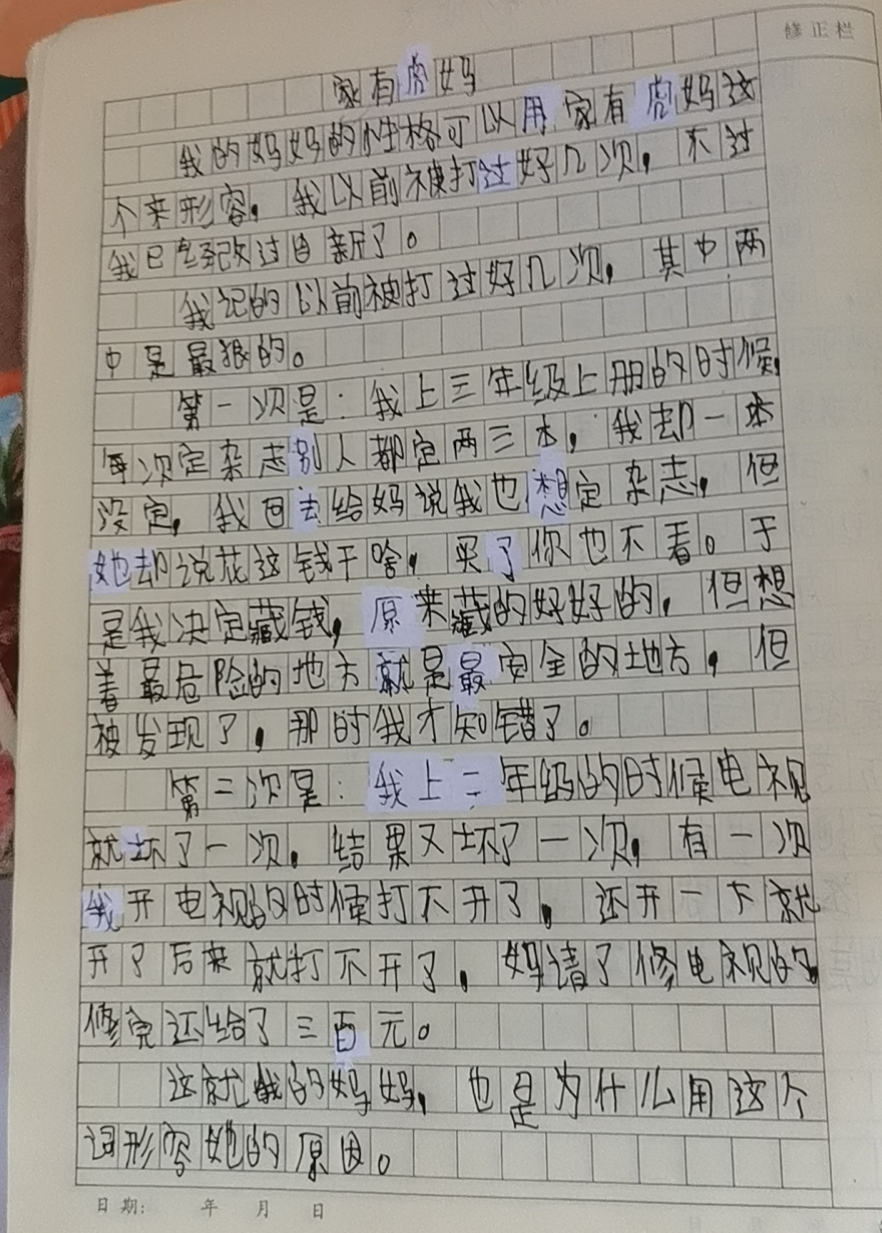 修正栏
家有虎妈
我的妈妈的性格可以用家有虎妈这
个来形容，我以前被打过好几次，不过
我已经改过自新了。
我记的以前被打过好几次，其中两
中是最狠的。
第一次是：我上三年级上册的时候，
每次定杂志别人都定两三本，我却一本
没定，我回去给妈说我也想定杂志，但
她却说花这钱干啥，买了你也不看。于
是我决定藏钱，原来藏的好好的，但想
着最危险的地方就是最安全的地方，但
被发现了，那时我才知错了。
第二次是：我上二年级的时候电视
就坏了一次，结果又坏了一次，有一次
我开电视的时候打不开了，还开一下就
开了后来就打不开了，妈请了修电视的，
修完还给了三百元。
这就我的妈妈，也是为什么用这个
词形容她的原因。
日期： 年 月 日